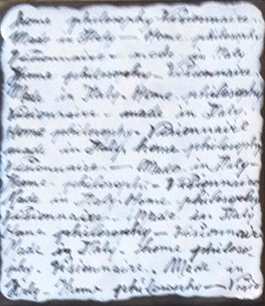 Home philosophy Visionnaire
Made in Italy - Home philosoph
Visionnaire - made in Italy
Home philosophy - Visionnaire
Made in Italy - Home philosop
Visionnaire - made in Italy
Home philosophy - Visionnaire
made in Italy home philosophy
Visionnaire - Made in Italy -
Home philosophy - Visionnair
Made in Italy - Home philosop
Visionnaire - Made in Italy
Home philosophy - Visionnair
Made in Italy - Home philoso
phy - Visionnaire. Made in
Italy - Home philosophy - Visio